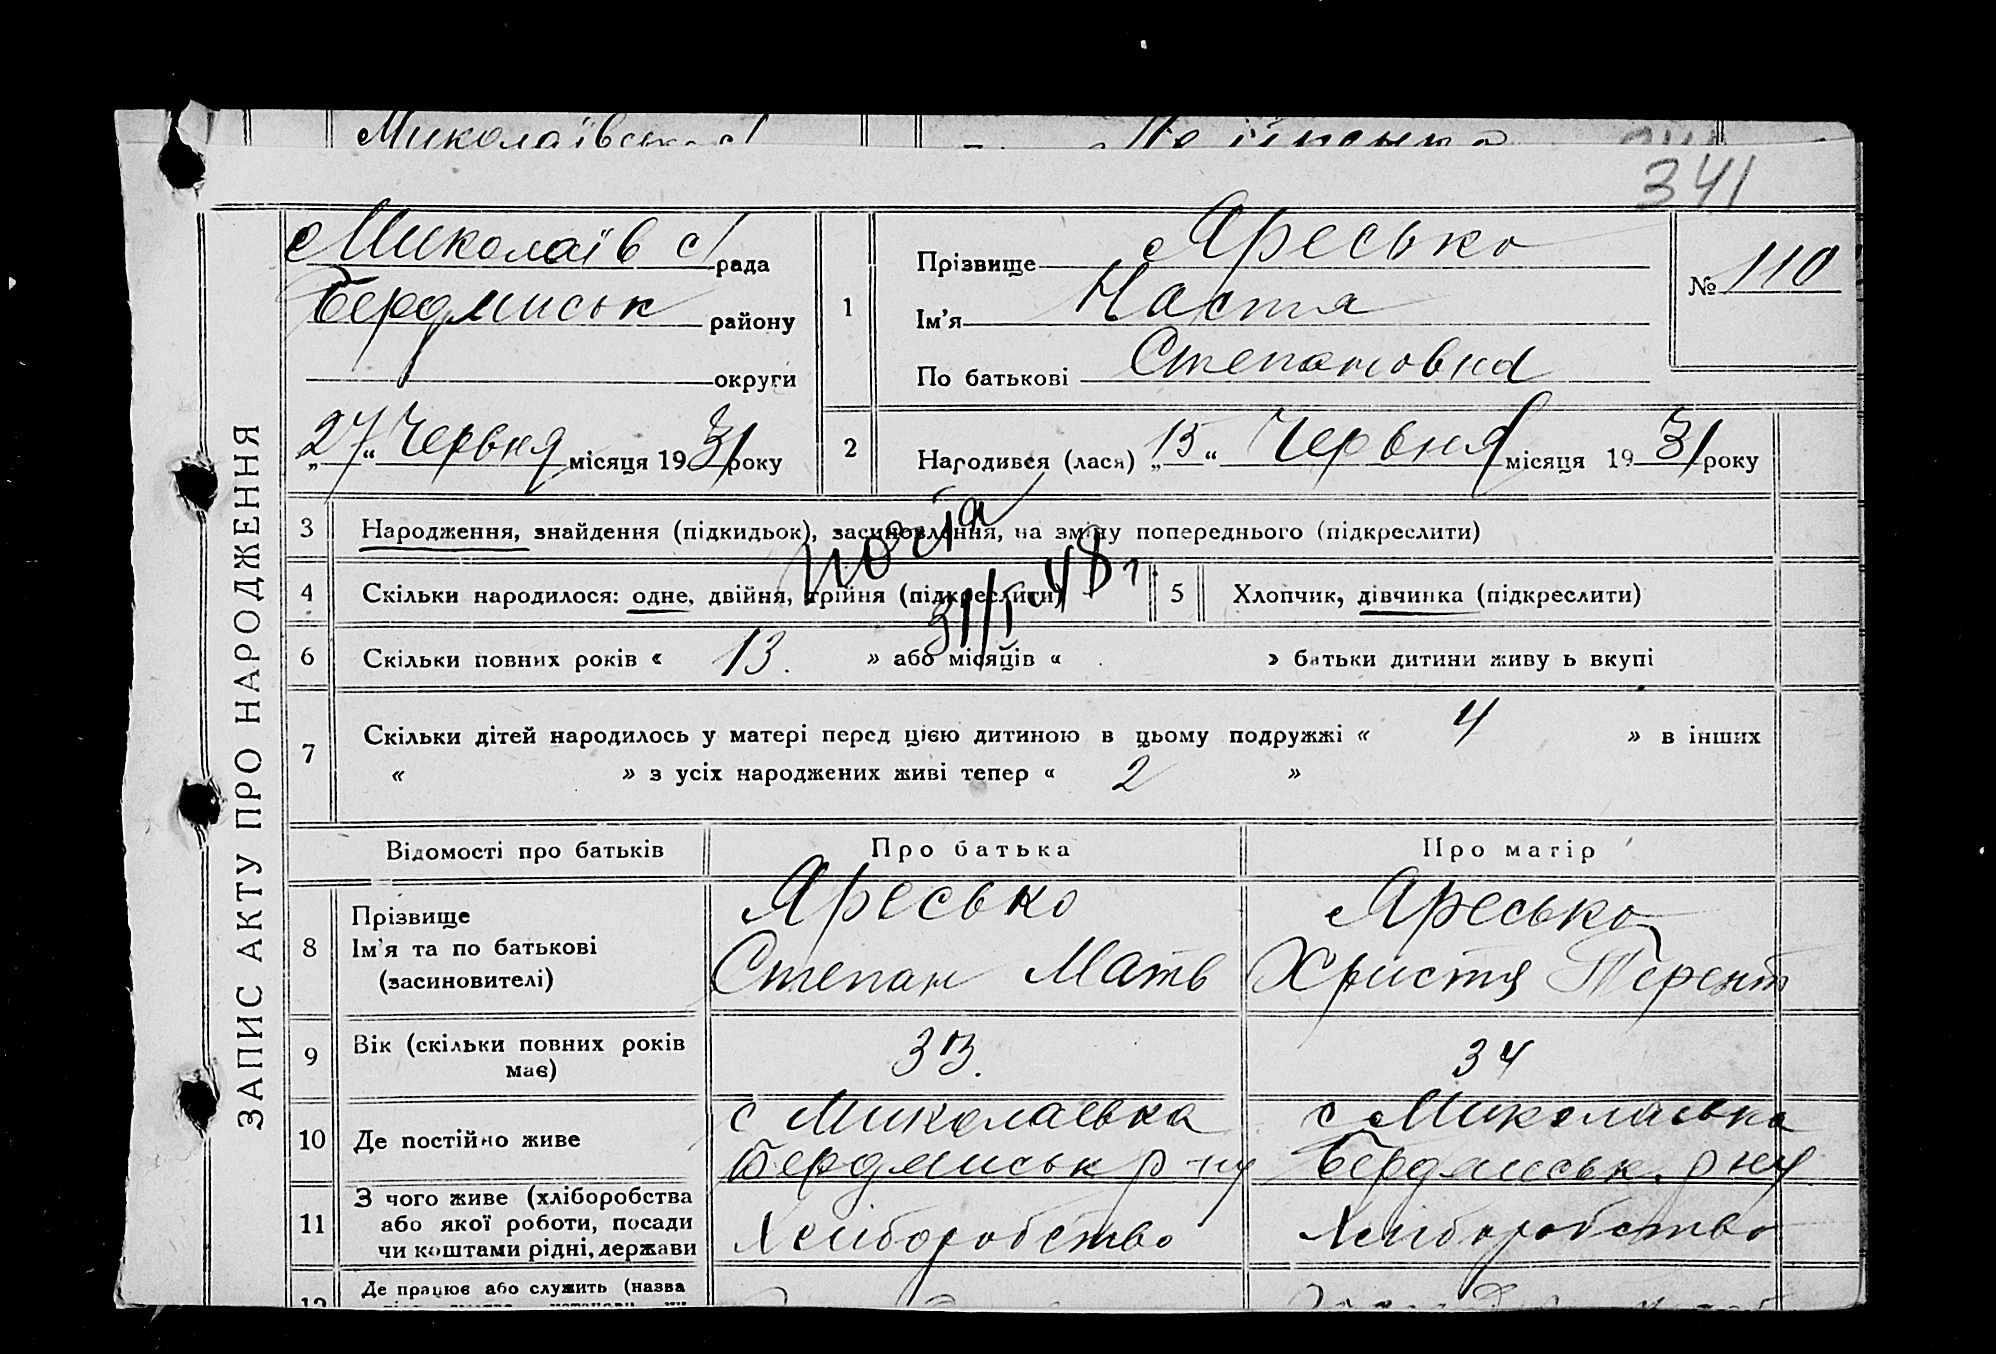 Миколаївська с/
341
ЗАПИС АКТУ ПРО НАРОДЖЕННЯ
Миколаїв с/ рада
Бердянськ району
округи
„27“ Червня місяця 1931 року
1
Прізвище Яресько
Ім'я Настя
По батькові Степановна
№ 110
2
Народився (лася) „15“ Червня місяця 1931 року
3 Народження, знайдення (підкидьок), засиновлення, на зміну попереднього (підкреслити)
4 Скільки народилося: одне, двійня, трійня (підкреслити) 5 Хлопчик, дівчинка (підкреслити)
31/I 48 г.
6 Скільки повних років « 13. » або місяців « » батьки дитини живуть вкупі
7 Скільки дітей народилось у матері перед цією дитиною в цьому подружжі « 4 » в інших
« » з усіх народжених живі тепер « 2 »
Відомості про батьків Про батька Про матір
8 Прізвище Яресько Яресько
Ім'я та по батькові Степан Матв Христя Терент
(засиновителі)
9 Вік (скільки повних років має) 33. 34
10 Де постійно живе с Миколаєвка с Миколаєвка
Бердянськ р-ну Бердянськ. р ну
11 З чого живе (хліборобства
або якої роботи, посади
чи коштами рідні, держави Хліборобство Хліборобство
12 Де працює або служить (назва